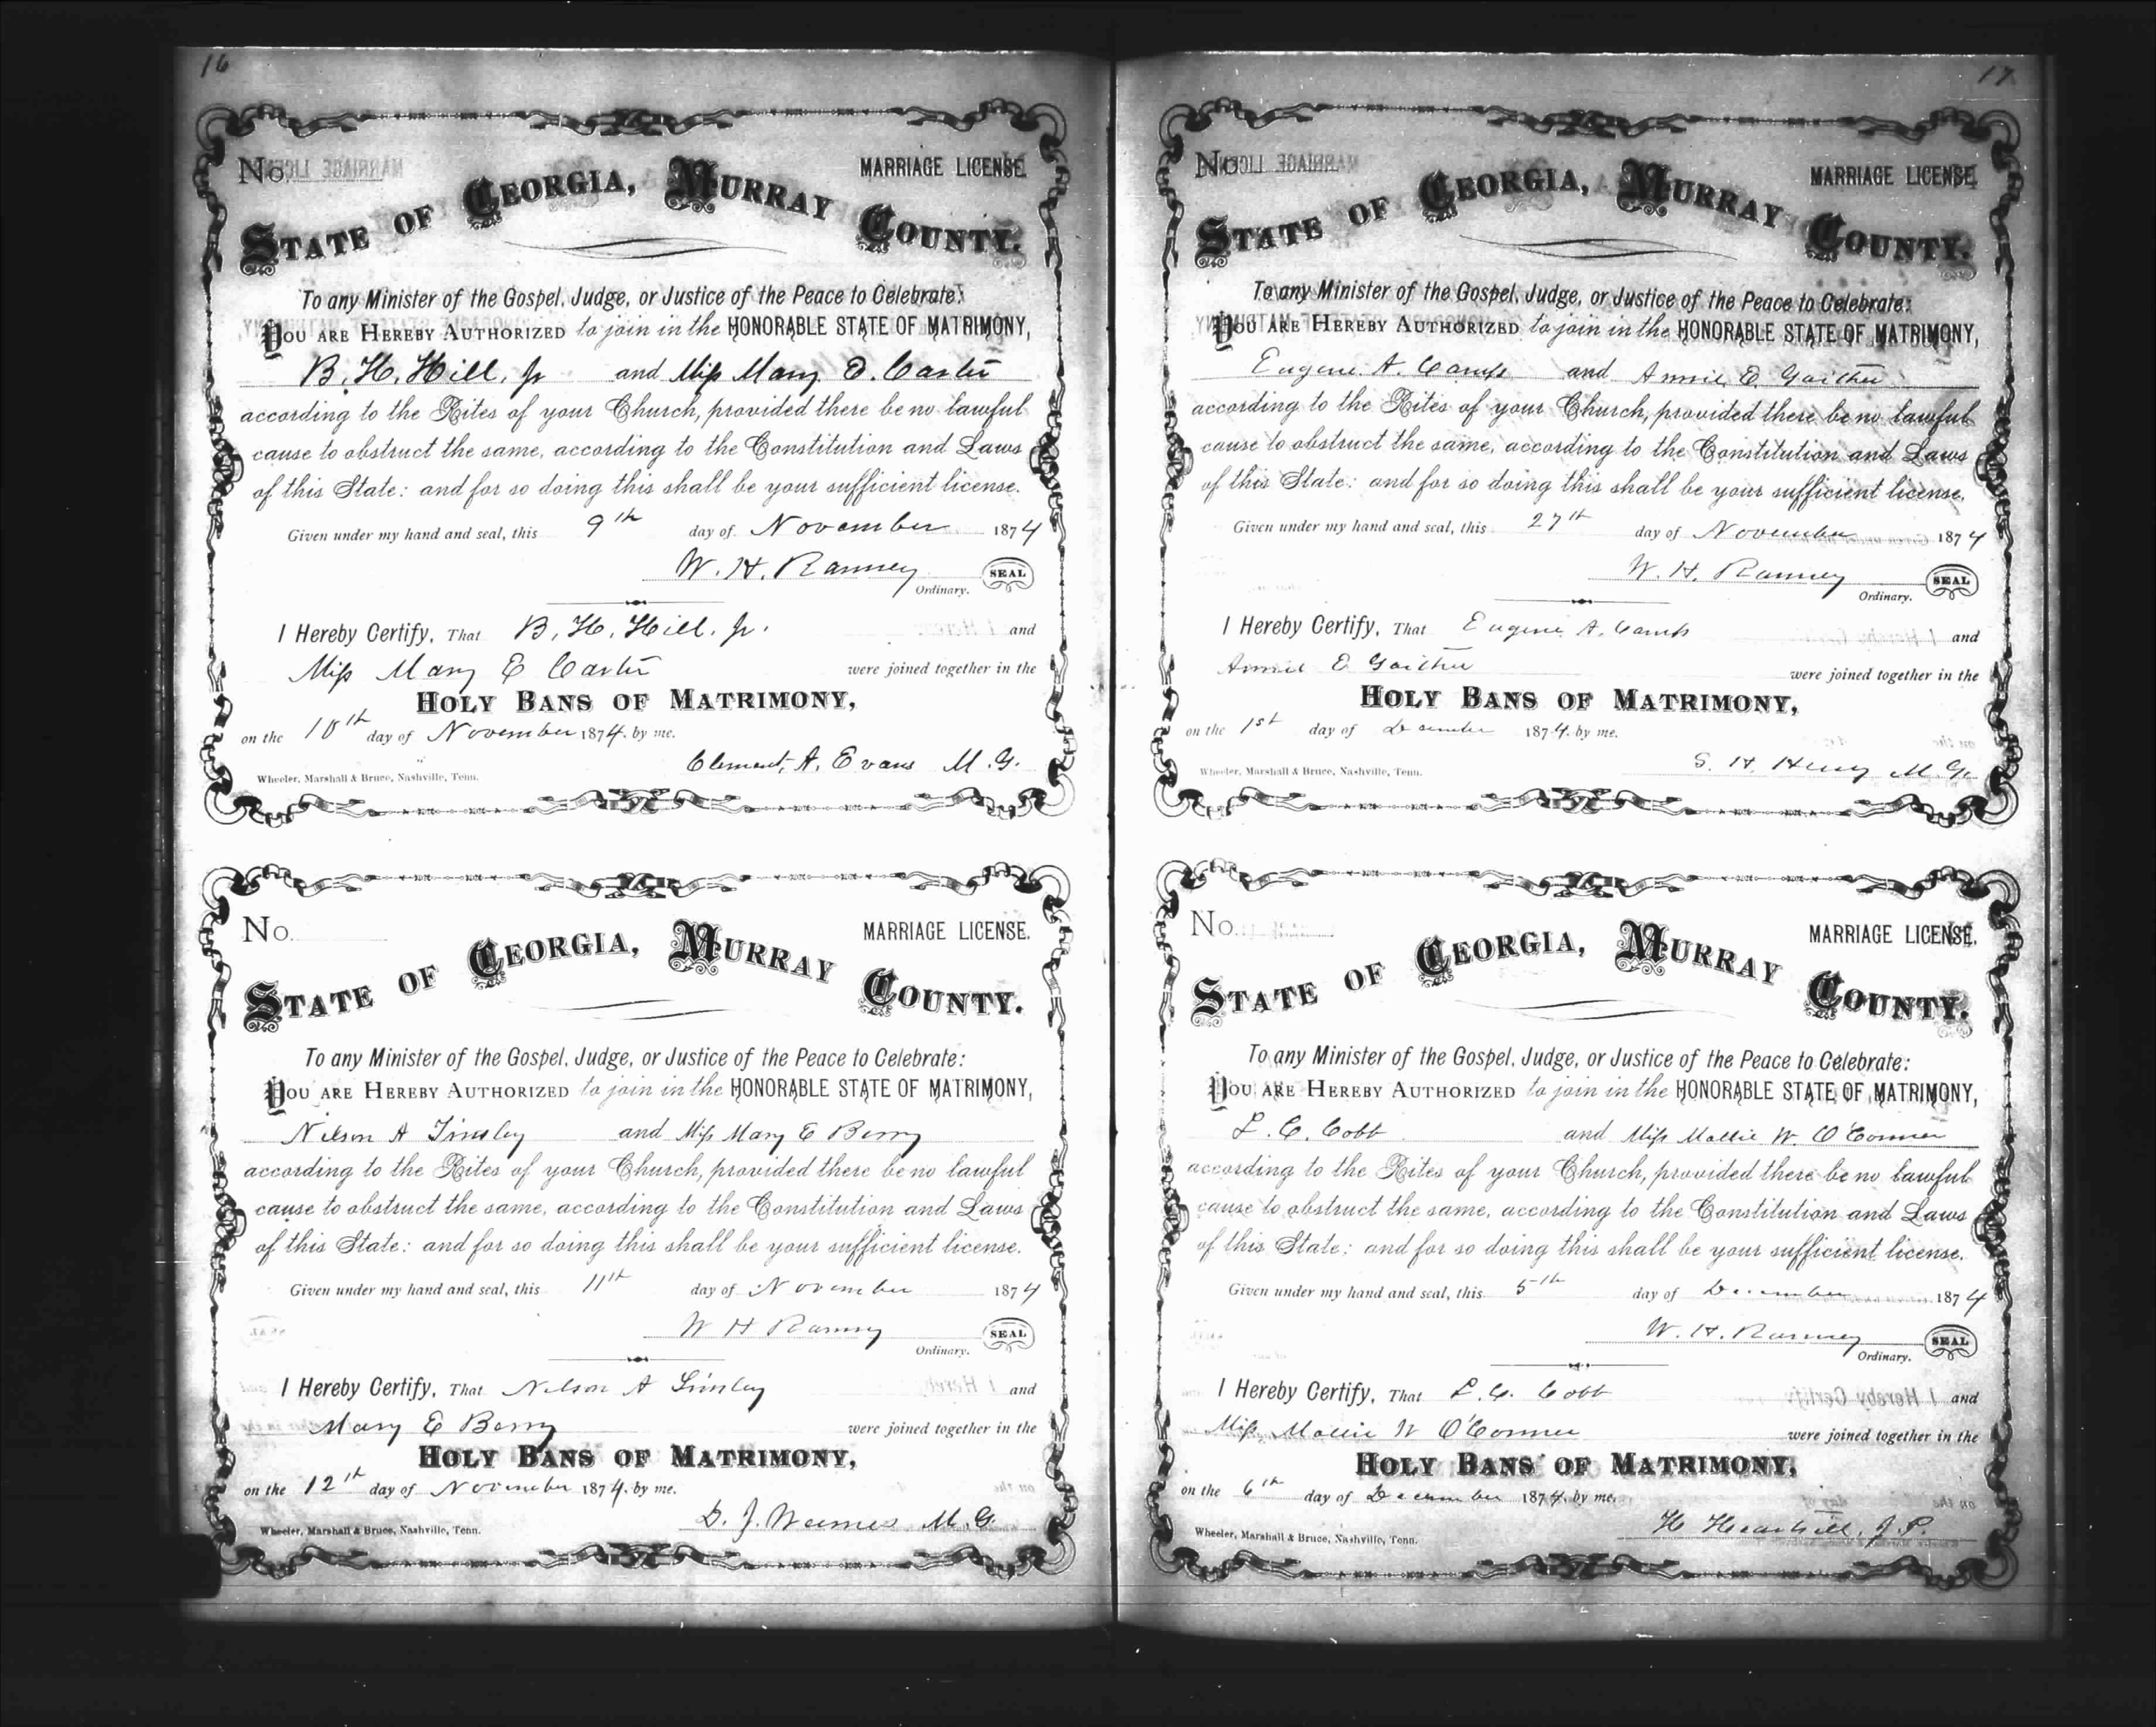 16
No.
MARRIAGE LICENSE.
STATE OF GEORGIA, MURRAY COUNTY.
To any Minister of the Gospel, Judge, or Justice of the Peace to Celebrate:
YOU ARE HEREBY AUTHORIZED to join in the HONORABLE STATE OF MATRIMONY,
B. H. Hill, Jr and Miss Mary E. Carter
according to the Rites of your Church, provided there be no lawful
cause to obstruct the same, according to the Constitution and Laws
of this State: and for so doing this shall be your sufficient license.
Given under my hand and seal, this 9th day of November 1874
W. H. Ramsey SEAL
Ordinary.
I Hereby Certify, That B. H. Hill, Jr. and
Miss Mary E Carter were joined together in the
HOLY BANS OF MATRIMONY,
on the 10th day of November 1874. by me.
Clement, A. Evans M. G.
Wheeler, Marshall & Bruce, Nashville, Tenn.
No.
MARRIAGE LICENSE.
STATE OF GEORGIA, MURRAY COUNTY.
To any Minister of the Gospel, Judge, or Justice of the Peace to Celebrate:
YOU ARE HEREBY AUTHORIZED to join in the HONORABLE STATE OF MATRIMONY,
Nelson A Tinsley and Miss Mary E Berry
according to the Rites of your Church, provided there be no lawful
cause to obstruct the same, according to the Constitution and Laws
of this State: and for so doing this shall be your sufficient license.
Given under my hand and seal, this 11th day of November 1874
W H Ramsey SEAL
Ordinary.
I Hereby Certify, That Nelson A Tinsley and
Mary E Berry were joined together in the
HOLY BANS OF MATRIMONY,
on the 12th day of November 1874. by me.
D. J. Weems M. G.
Wheeler, Marshall & Bruce, Nashville, Tenn.
17
No.
MARRIAGE LICENSE.
STATE OF GEORGIA, MURRAY COUNTY.
To any Minister of the Gospel, Judge, or Justice of the Peace to Celebrate:
YOU ARE HEREBY AUTHORIZED to join in the HONORABLE STATE OF MATRIMONY,
Eugene A. Camp and Annie E. Gaither
according to the Rites of your Church, provided there be no lawful
cause to obstruct the same, according to the Constitution and Laws
of this State: and for so doing this shall be your sufficient license.
Given under my hand and seal, this 27th day of November 1874
W. H. Ramsey SEAL
Ordinary.
I Hereby Certify, That Eugene A. Camp and
Annie E Gaither were joined together in the
HOLY BANS OF MATRIMONY,
on the 1st day of December 1874. by me.
S. H. Henry M. G.
Wheeler, Marshall & Bruce, Nashville, Tenn.
No.
MARRIAGE LICENSE.
STATE OF GEORGIA, MURRAY COUNTY.
To any Minister of the Gospel, Judge, or Justice of the Peace to Celebrate:
YOU ARE HEREBY AUTHORIZED to join in the HONORABLE STATE OF MATRIMONY,
L. C. Cobb and Miss Mollie W. O'Conner
according to the Rites of your Church, provided there be no lawful
cause to obstruct the same, according to the Constitution and Laws
of this State: and for so doing this shall be your sufficient license.
Given under my hand and seal, this 5th day of December 1874
W. H. Ramsey SEAL
Ordinary.
I Hereby Certify, That L. C. Cobb and
Miss Mollie W O'Conner were joined together in the
HOLY BANS OF MATRIMONY,
on the 6th day of December 1874. by me.
H J. P.
Wheeler, Marshall & Bruce, Nashville, Tenn.